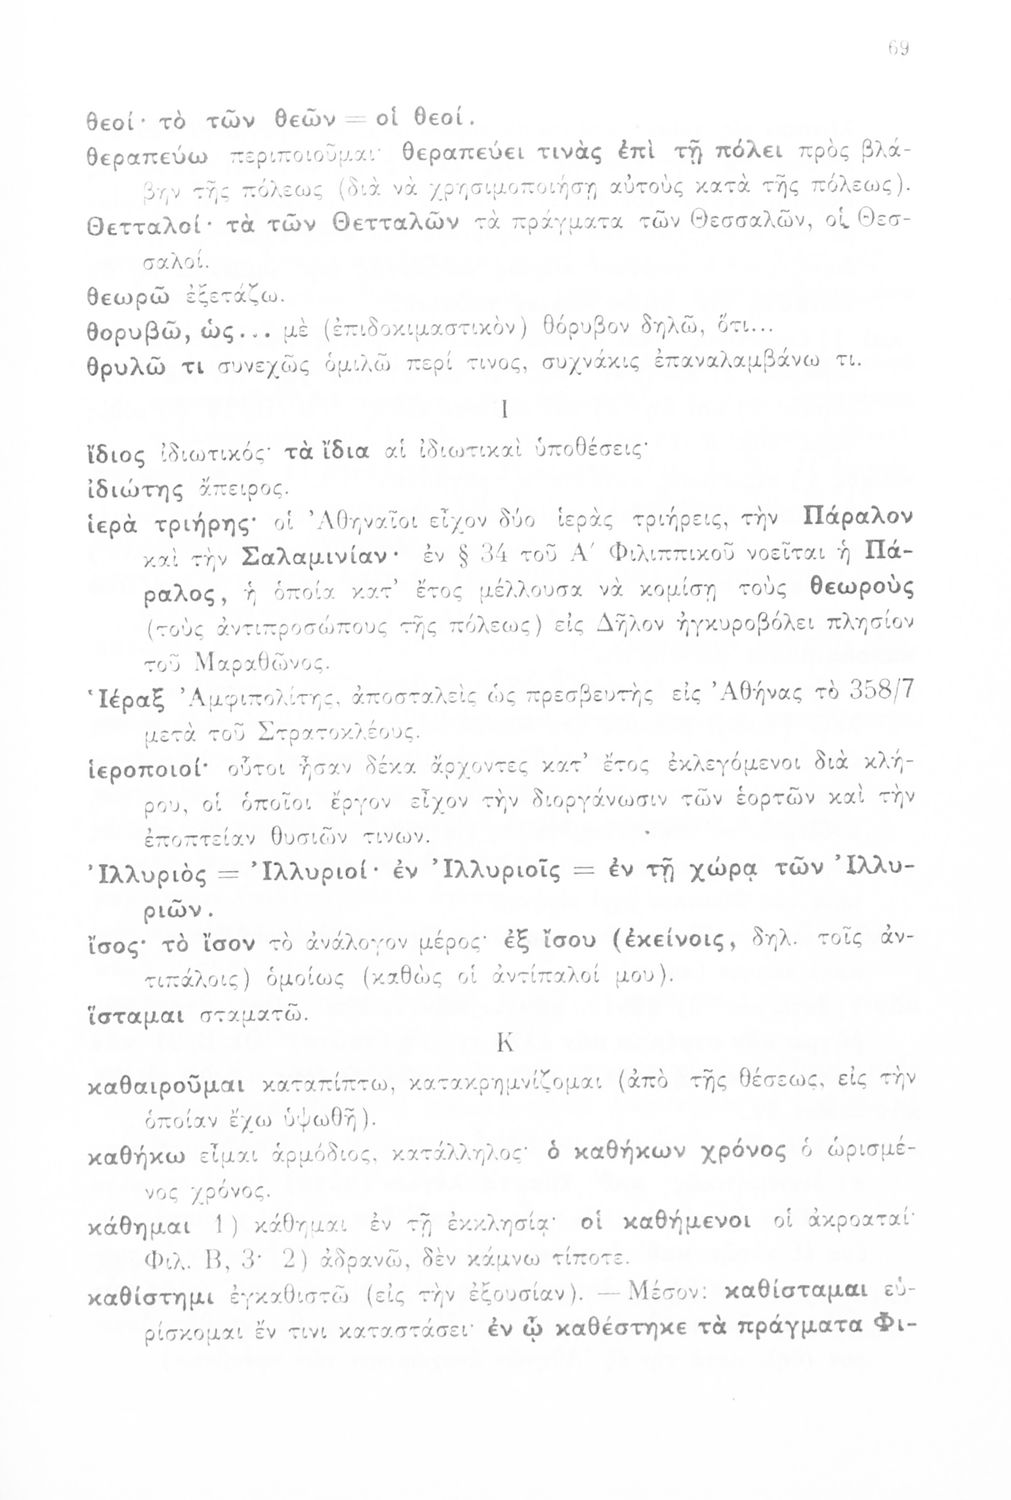 69
θεοί· τὸ τῶν θεῶν = οἱ θεοί.
θεραπεύω περιποιοῦμαι· θεραπεύει τινὰς ἐπὶ τῇ πόλει πρὸς βλά-
βην τῆς πόλεως (διὰ νὰ χρησιμοποιήσῃ αὐτοὺς κατὰ τῆς πόλεως).
Θετταλοί· τὰ τῶν Θετταλῶν τὰ πράγματα τῶν Θεσσαλῶν, οἱ Θεσ-
σαλοί.
θεωρῶ ἐξετάζω.
θορυβῶ, ὡς... μὲ (ἐπιδοκιμαστικὸν) θόρυβον δηλῶ, ὅτι...
θρυλῶ τι συνεχῶς ὁμιλῶ περί τινος, συχνάκις ἐπαναλαμβάνω τι.
Ι
ἴδιος ἰδιωτικός· τὰ ἴδια αἱ ἰδιωτικαὶ ὑποθέσεις·
ἰδιώτης ἄπειρος.
ἱερὰ τριήρης· οἱ Ἀθηναῖοι εἶχον δύο ἱερὰς τριήρεις, τὴν Πάραλον
καὶ τὴν Σαλαμινίαν· ἐν § 34 τοῦ Α΄ Φιλιππικοῦ νοεῖται ἡ Πά-
ραλος, ἡ ὁποία κατ' ἔτος μέλλουσα νὰ κομίσῃ τοὺς θεωροὺς
(τοὺς ἀντιπροσώπους τῆς πόλεως) εἰς Δῆλον ἠγκυροβόλει πλησίον
τοῦ Μαραθῶνος.
Ἱέραξ Ἀμφιπολίτης, ἀποσταλεὶς ὡς πρεσβευτὴς εἰς Ἀθήνας τὸ 358/7
μετὰ τοῦ Στρατοκλέους.
ἱεροποιοί· οὗτοι ἦσαν δέκα ἄρχοντες κατ' ἔτος ἐκλεγόμενοι διὰ κλή-
ρου, οἱ ὁποῖοι ἔργον εἶχον τὴν διοργάνωσιν τῶν ἑορτῶν καὶ τὴν
ἐποπτείαν θυσιῶν τινων.
Ἰλλυριὸς = Ἰλλυριοί· ἐν Ἰλλυριοῖς = ἐν τῇ χώρᾳ τῶν Ἰλλυ-
ριῶν.
ἴσος· τὸ ἴσον τὸ ἀνάλογον μέρος· ἐξ ἴσου (ἐκείνοις, δηλ. τοῖς ἀν-
τιπάλοις) ὁμοίως (καθὼς οἱ ἀντίπαλοί μου).
ἵσταμαι σταματῶ.
Κ
καθαιροῦμαι καταπίπτω, κατακρημνίζομαι (ἀπὸ τῆς θέσεως, εἰς τὴν
ὁποίαν ἔχω ὑψωθῆ).
καθήκω εἶμαι ἁρμόδιος, κατάλληλος· ὁ καθήκων χρόνος ὁ ὡρισμέ-
νος χρόνος.
κάθημαι 1) κάθημαι ἐν τῇ ἐκκλησίᾳ· οἱ καθήμενοι οἱ ἀκροαταί·
Φιλ. Β, 3· 2) ἀδρανῶ, δὲν κάμνω τίποτε.
καθίστημι ἐγκαθιστῶ (εἰς τὴν ἐξουσίαν). — Μέσον: καθίσταμαι εὑ-
ρίσκομαι ἔν τινι καταστάσει· ἐν ᾧ καθέστηκε τὰ πράγματα Φι-